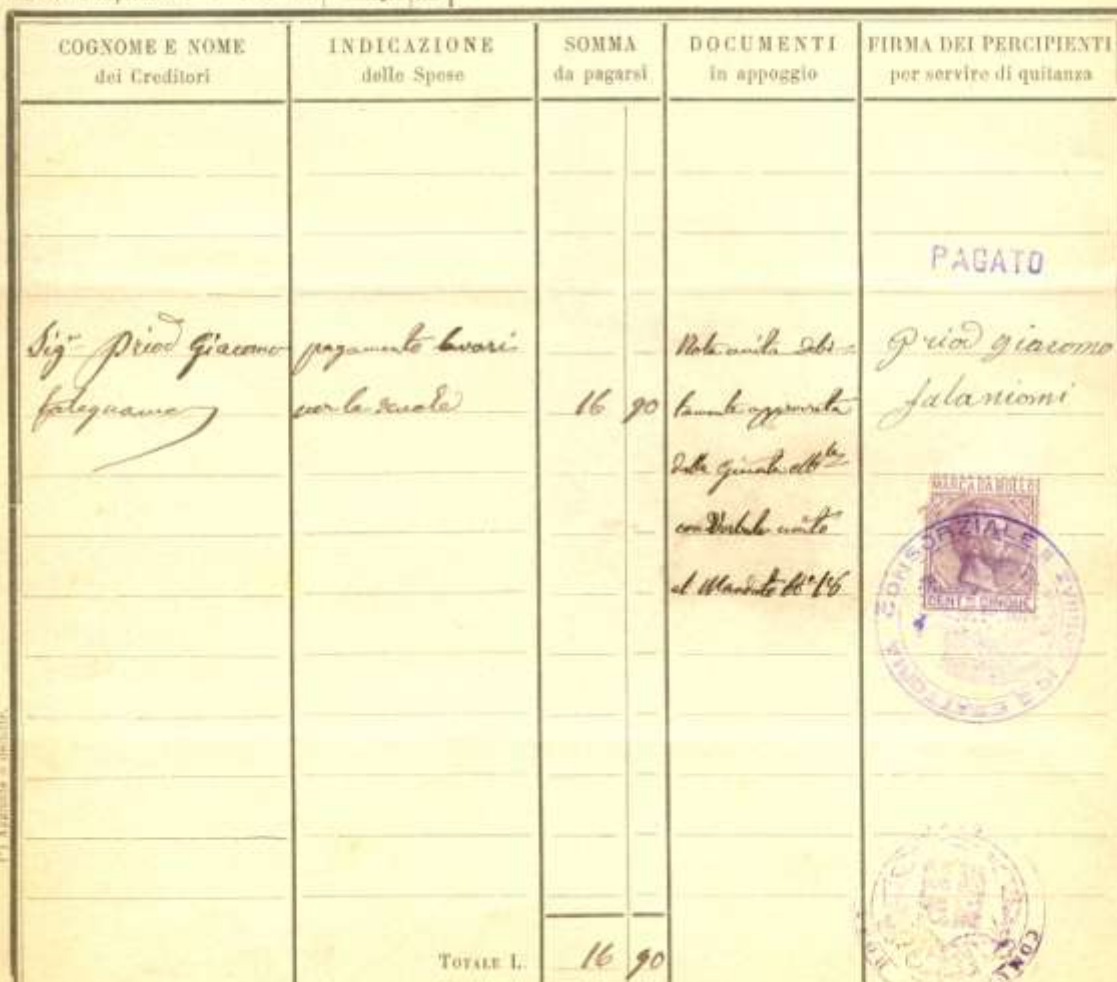 COGNOME E NOME
dei Creditori
INDICAZIONE
delle Spese
SOMMA
da pagarsi
DOCUMENTI
in appoggio
FIRMA DEI PERCIPIENTI
per servire di quitanza
PAGATO
Sigr Priod Giacomo
falegname
pagamento lavori
per la scuola
16 90
Nota unita debi-
tamente approvata
dalla Giunta
con Verbale unito
al Mandato No 16
Priod giacomo
MARCA DA BOLLO
CENT. CINQUE
CONSORZIALE
ESATTORIA
TOTALE L.
16 90